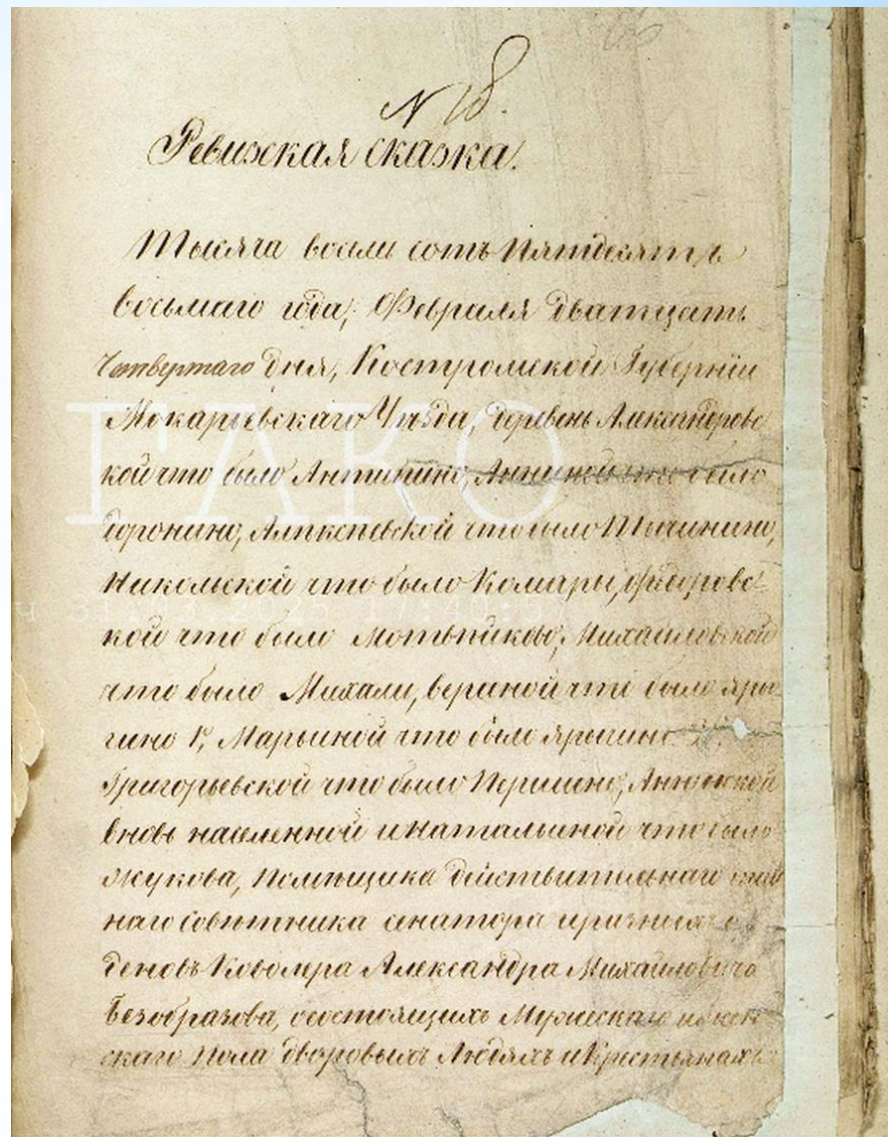 N 18.
Ревизская сказка.
Тысяча восемь сотъ пятдесятъ
восьмаго года, Февраля дватцать
четвертаго дня, Костромской Губерніи
Макарьевскаго Уѣзда, деревень Александровс
кой что было Антипино, Анниной что было
доронино, Алексѣевской что было Тычинино,
Никольской что было Комары, Федоровс-
кой что было Мотьвиково, Михаиловской
что было Михали, вериной что было яры
гино 1, Марьиной что было ярыгино 2.
Григорьевской что было Першино, Аннинской
вновь населенной и натальиной что было
Жукова, Помѣщика действительнаго
наго Совѣтника сенатора и разныхъ ор
деновъ Кавалера Александра Михаиловича
Безобразова, о состоящихъ Мужескаго и женс
скаго пола дворовыхъ Людяхъ и Крестьянахъ
ГАКО